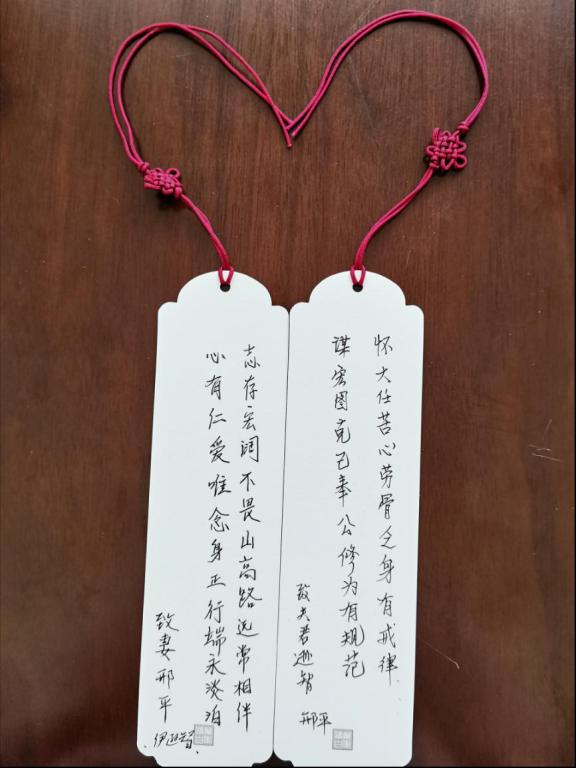 怀大任苦心劳骨乏身有戒律
谋宏图克己奉公修为有规范
致夫君逊智
邢平
志存宏阔不畏山高路远常相伴
心有仁爱唯念身正行端永淡泊
致妻邢平
伊逊智